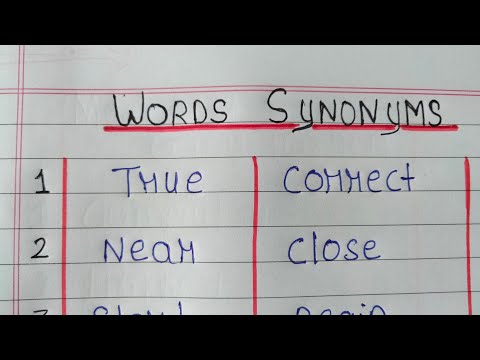 WORDS SYNONYMS
1 True Correct
2 Near Close
3